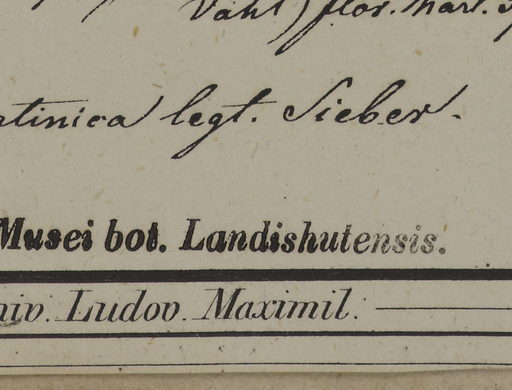 Vahl) flor. mart.
atinica legt. Sieber.
Musei bot. Landishutensis.
niv. Ludov. Maximil.